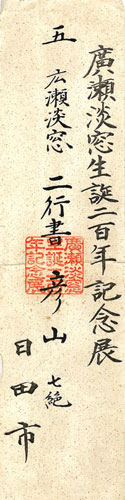 廣瀬淡窓生誕二百年記念展
五 広瀬淡窓 二行書 彦山 七絶
日田市
廣瀬淡窓
生誕二百
年記念展